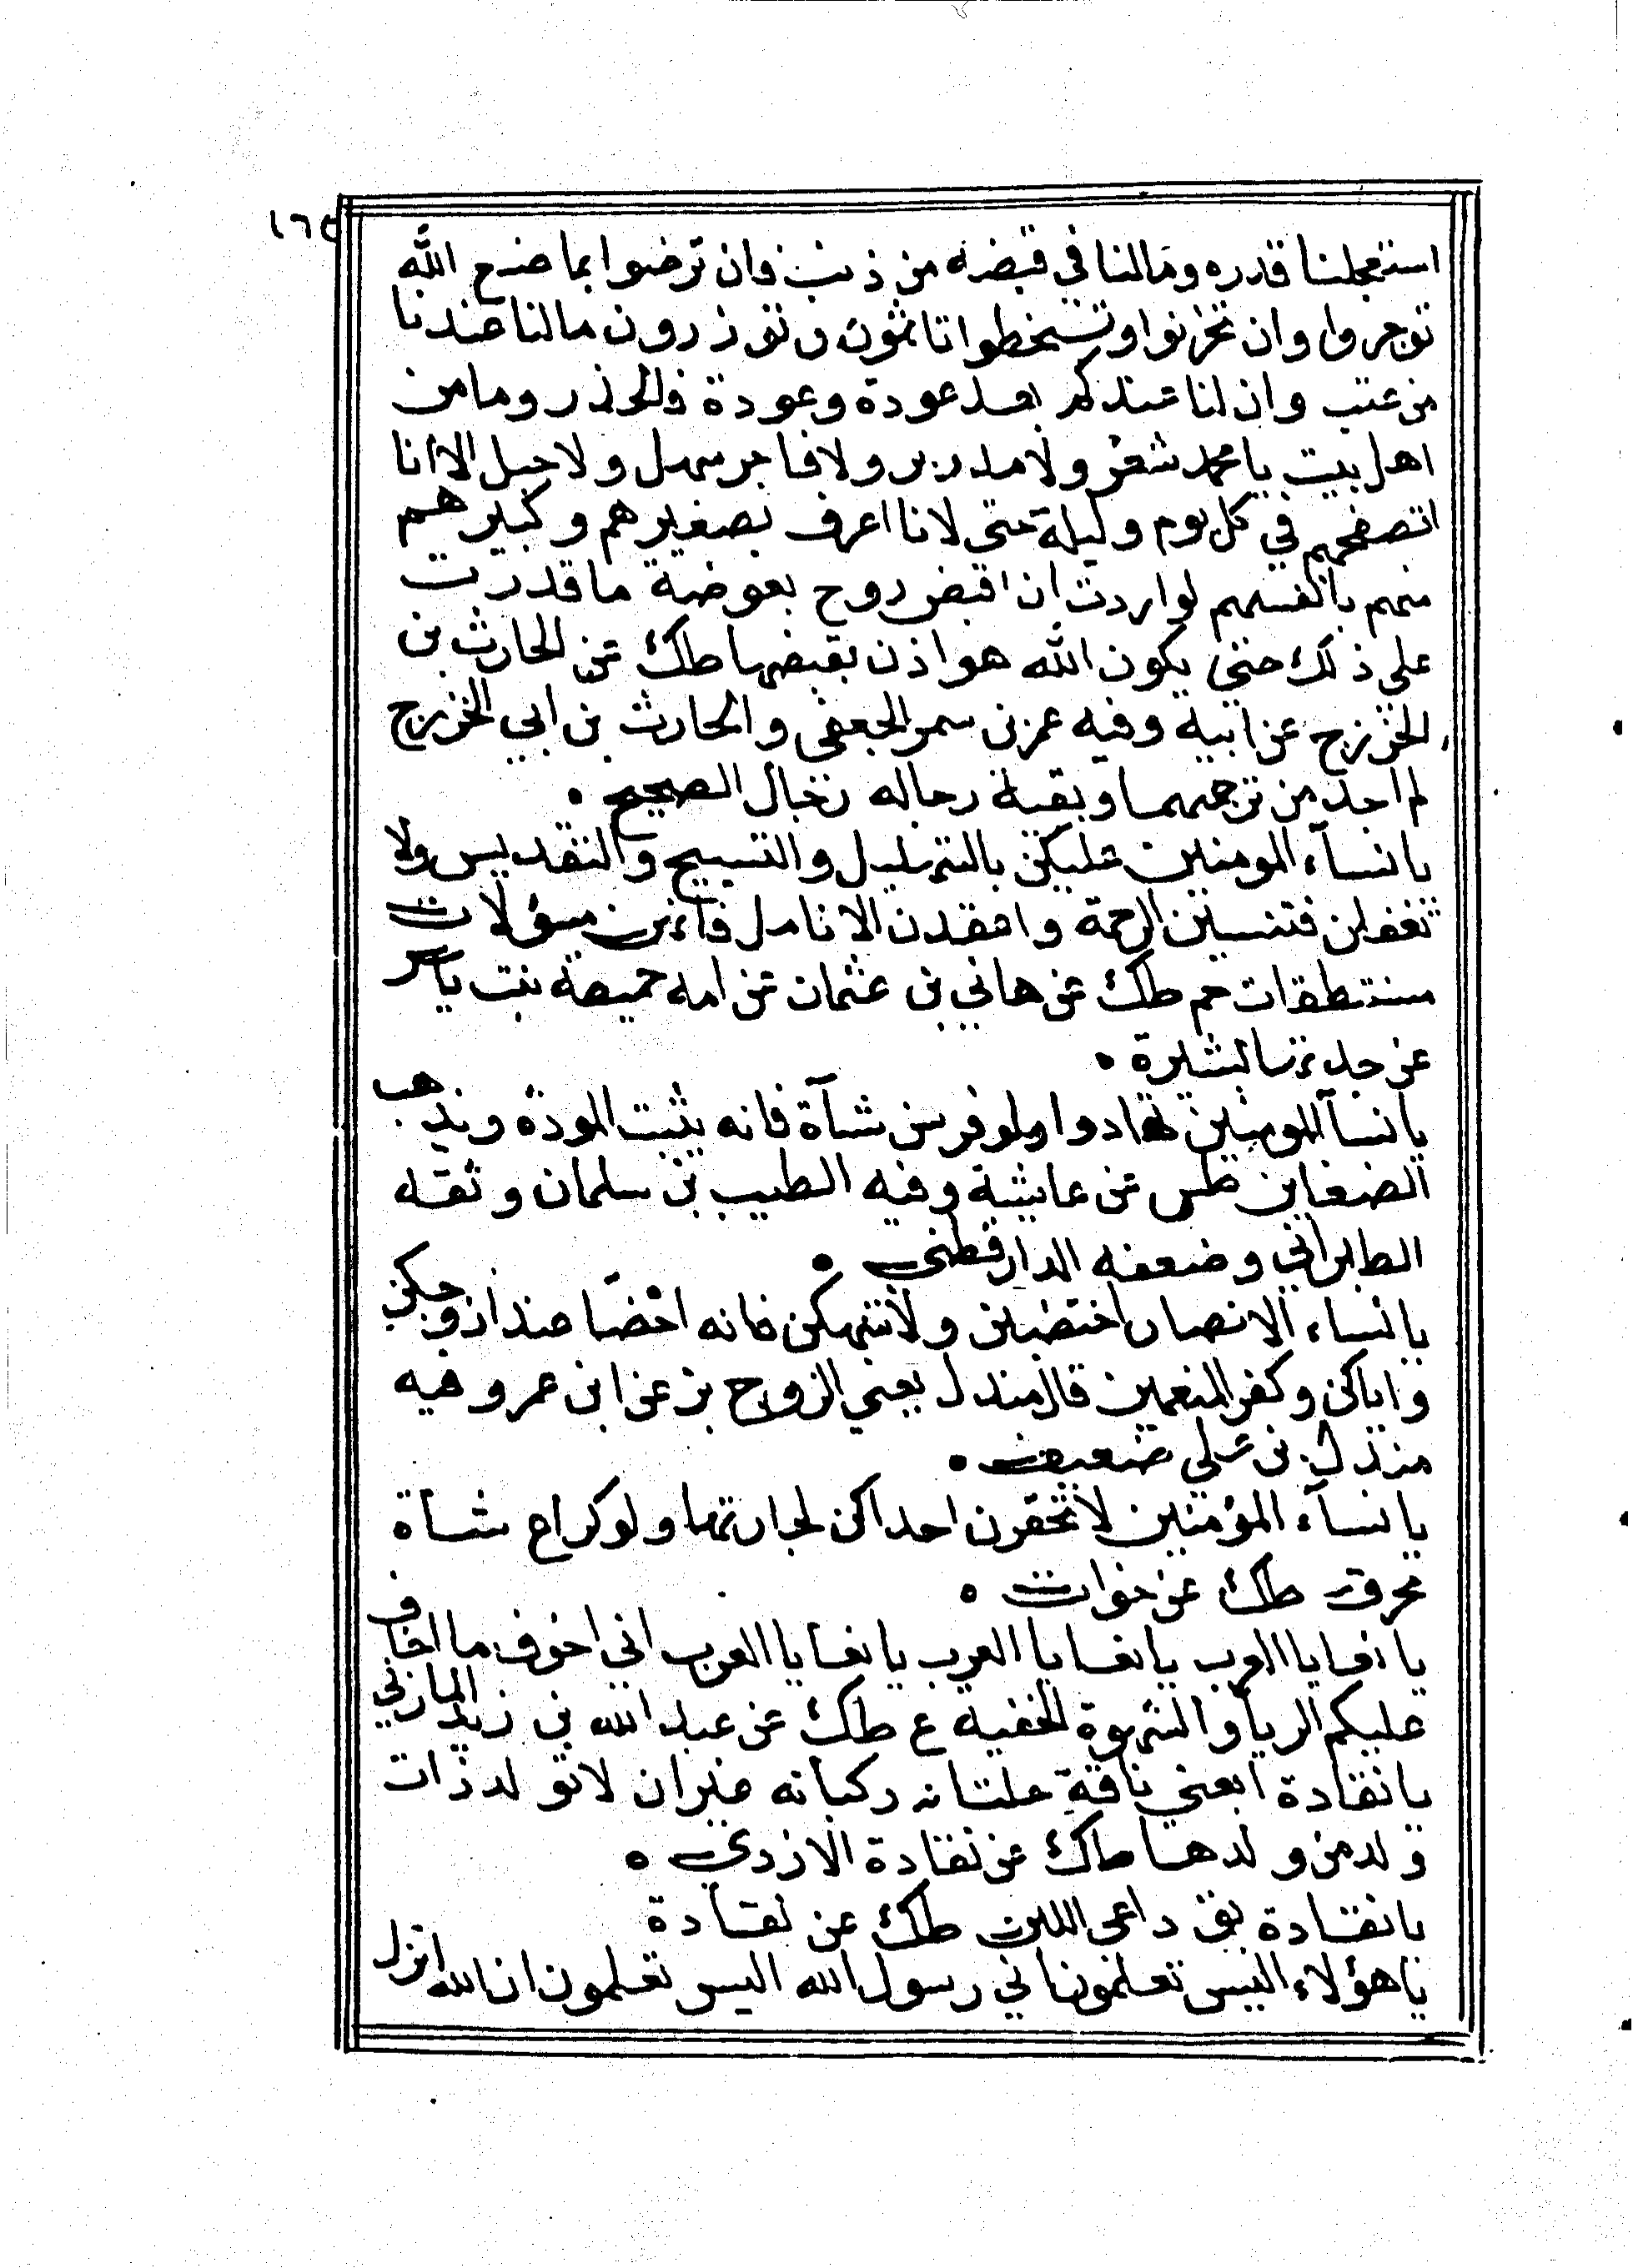 ١٦٤
استعجلنا قدره ومالنا في قبضه من ذنب فان ترضوا بما صنع الله
توجروا وان تحزنوا وتسخطوا تاثمون وتوزرون مالنا عندنا
من عتب وان لنا عندكم بعد عودة وعودة فالحذر وما من
اهل بيت يا محمد شعر ولا مدر بر ولا فاجر سهل ولا جبل الا انا
اتصفحهم في كل يوم وليلة حتى لانا اعرف بصغيرهم وكبيرهم
منهم بانفسهم لو اردت ان اقبض روح بعوضة ما قدرت
على ذلك حتى يكون الله هو اذن بقبضها طك عن الحارث بن
الخزرج عن ابيه وفيه عمر بن سمر الجعفي والحارث بن ابي الخزرج
لم اجد من ترجمهما وبقية رجاله رجال الصحيح ٥
يا نساء المومنين عليكن بالتهليل والتسبيح والتقديس ولا
تغفلن فتنسين الرحمة واعقدن الانامل فانهن مسؤلات
مستنطقات حم طك عن هاني بن عثمان عن امه حميصة بنت ياسر
عن جدتها يسيرة ٥
يا نسا المومنين تهادوا ولو فرسن شاة فانه يثبت المودة ويذهب
الضغاين طس عن عايشة وفيه الطيب بن سلمان وثقه
الطبراني وضعفه الدارقطني ٥
يا نساء الانصار اختضبن ولا تنهكن فانه احضا عند ازوجكن
واياكن وكفر المنعمين قال مندل يعني الزوج بز عن ابن عمر وفيه
مندل بن علي ضعيف ٥
يا نساء المؤمنين لا تحقرن احداكن لجارتها ولو كراع شاة
محرق طك عن خوات ٥
يا نعايا العرب يا نعايا العرب يا نعايا العرب اني اخوف ما اخاف
عليكم الريا والشهوة الخفيه ع طك عن عبد الله بن زيد المازني
يا نقادة ابعني ناقة حلبانه ركبانه غير ان لا توله ذات
ولد من ولدها طك عن نقادة الازدي ٥
يا نقادة بق داعي اللبن طك عن نقادة
يا هؤلاء اليس تعلمون اني رسول الله اليس تعلمون ان الله انزل